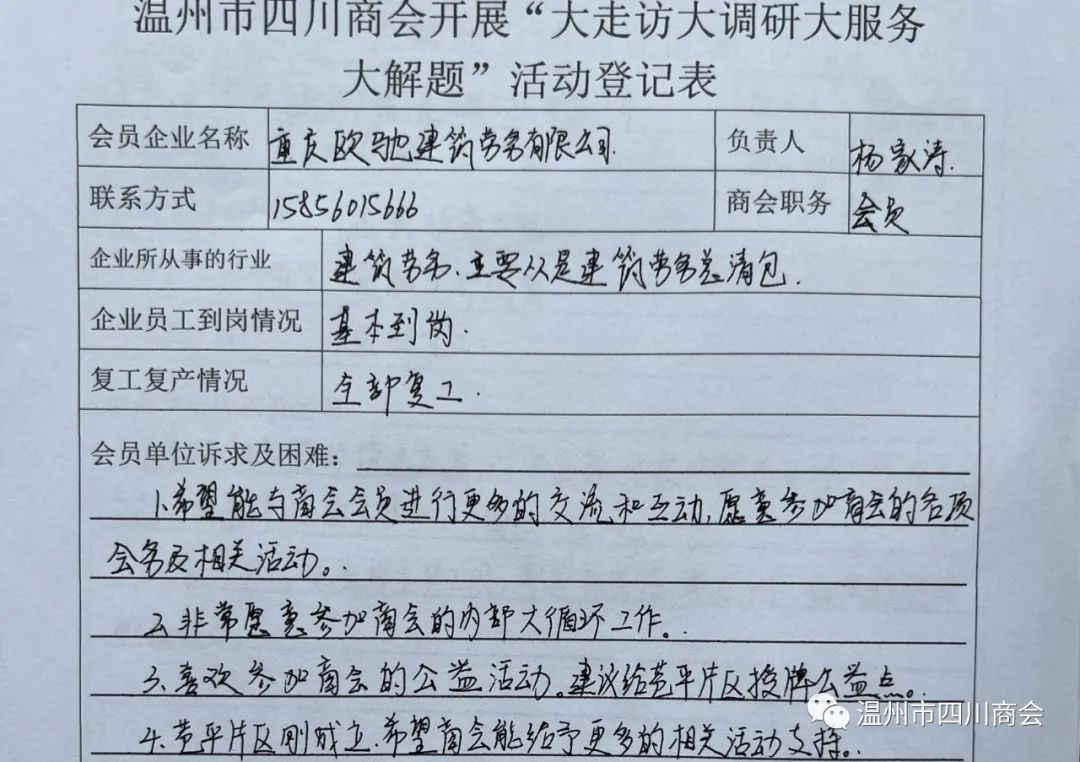 温州市四川商会开展“大走访大调研大服务
大解题”活动登记表
会员企业名称 重庆欧驰建筑劳务有限公司. 负责人 杨家涛.
联系方式 15856015666 商会职务 会员
企业所从事的行业 建筑劳务、主要从是建筑劳务总清包.
企业员工到岗情况 基本到岗.
复工复产情况 全部复工.
会员单位诉求及困难：
1.希望能与商会会员进行更多的交流和互动,愿意参加商会的各项
会务及相关活动。
2.非常愿意参加商会的内部大循环工作。
3.喜欢参加商会的公益活动。建议给苍平片区授牌公益点。
4.苍平片区刚成立.希望商会能给予更多的相关活动支持。
温州市四川商会